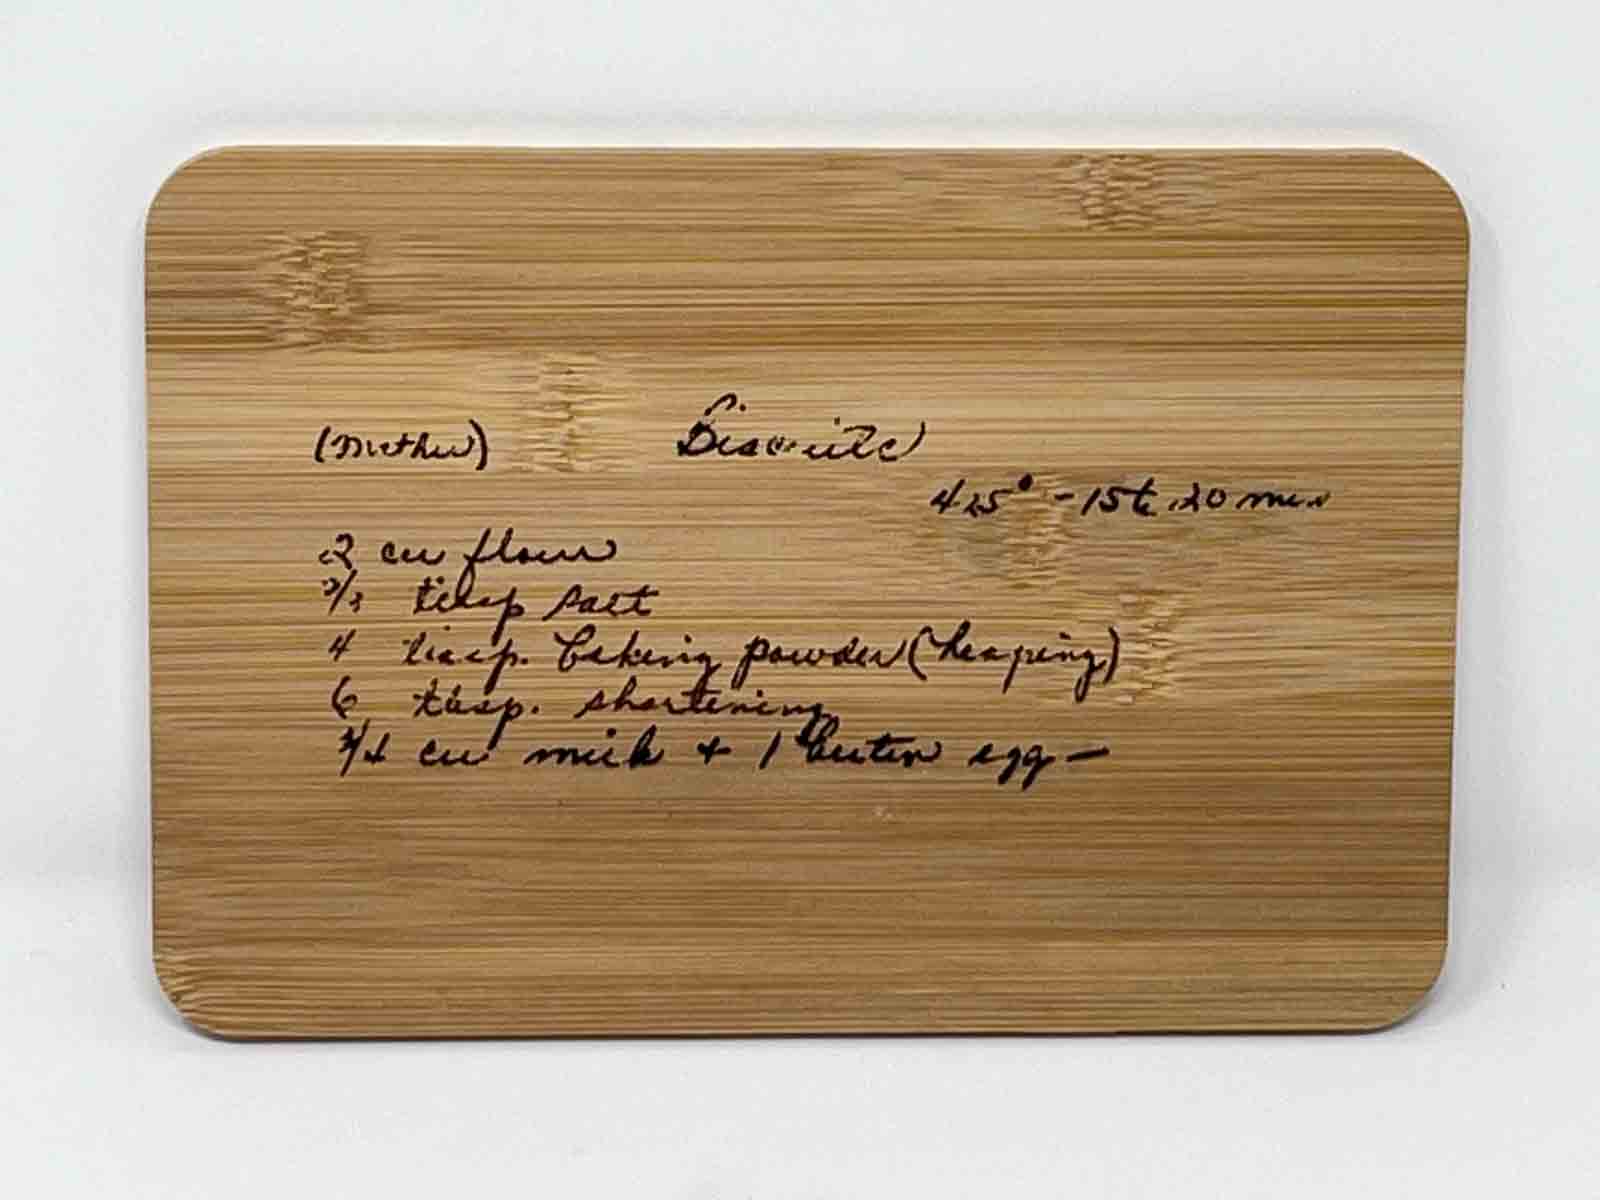 (Mother) Biscuits
425° - 15 to 20 min
2 cu flour
teasp salt
4 teasp. baking powder (heaping)
6 tbsp. shortening
3/4 cu milk + 1 beaten egg —